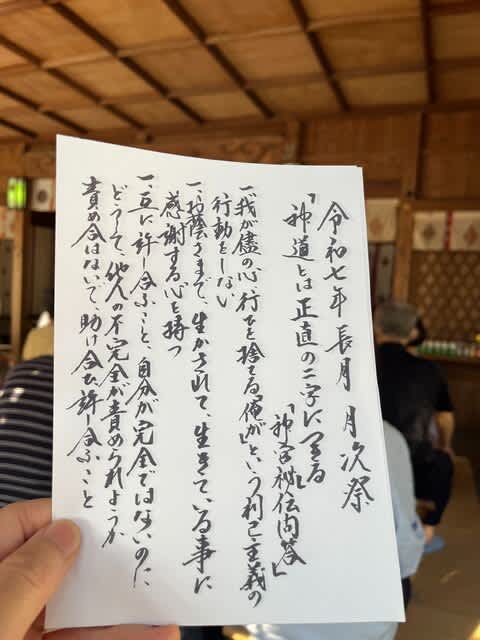 令和七年 長月 月次祭
「神道とは正直の二字につきる」
「神学秘伝問答」
一、我が儘の心行ひを捨てる「俺が」という利己主義の
行動をしない
一、お蔭さまで、生かされて、生きている事に
感謝する心を持つ
一、互に許し合ふこと、自分が完全ではないのに
どうして、他人の不完全が責められようか
責め合はないで、助け合ひ許し合ふこと